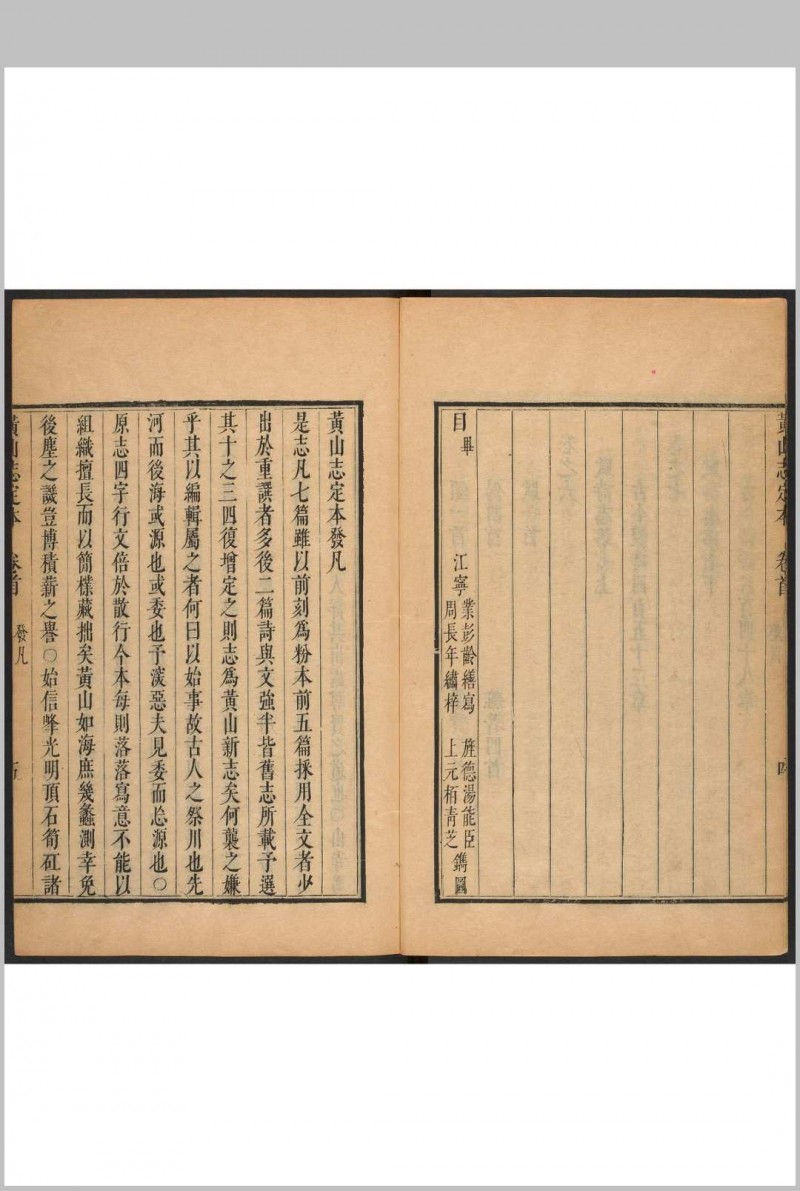 黃山志定本 卷首 四
目畢
江寧 業彭齡繕寫 周長年繡梓
旌德湯能臣 上元栢青芝 鐫圖
黃山志定本發凡
是志凡七篇雖以前刻爲粉本前五篇採用全文者少
出於重譔者多後二篇詩與文強半皆舊志所載予選
其十之三四復增定之則志爲黃山新志矣何襲之嫌
乎其以編輯屬之者何曰以始事故古人之祭川也先
河而後海或源也或委也予滋惡夫見委而忘源也〇
原志四字行文倍於散行今本每則落落寫意不能以
組織擅長而以簡樸藏拙矣黃山如海庶幾蠡測幸免
後塵之譏豈博積薪之譽〇始信峰光明頂石筍矼諸
黃山志定本 卷首 發凡